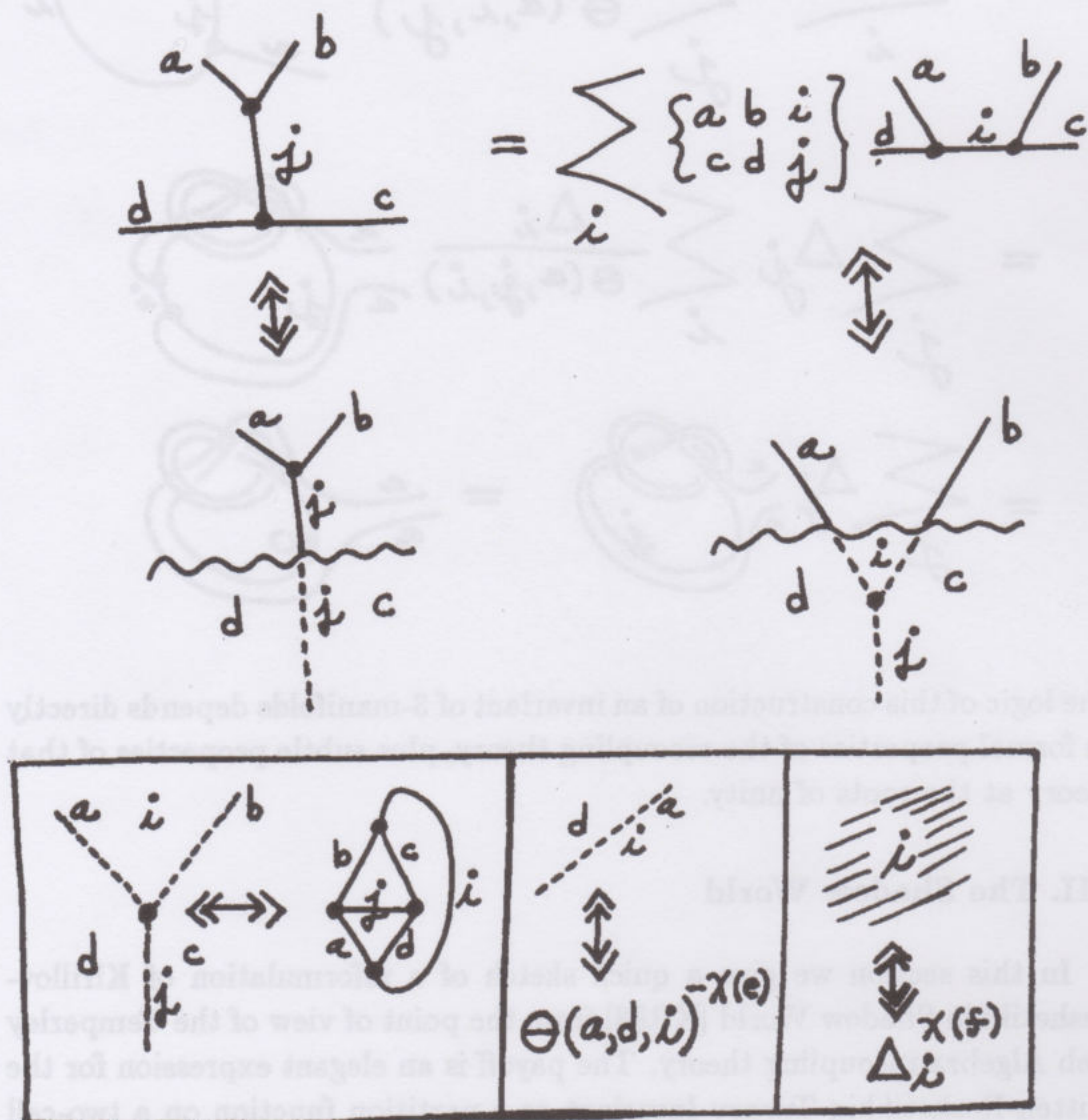 a b
j
d c
= ∑ i { a b i
c d j } a b
d i c
a b
j
d j c
a b
i
d c
j
a i b
d c
j
b c
j i
a d
d a
i
Θ(a,d,i)^{-χ(e)}
i
Δ_i^{χ(f)}